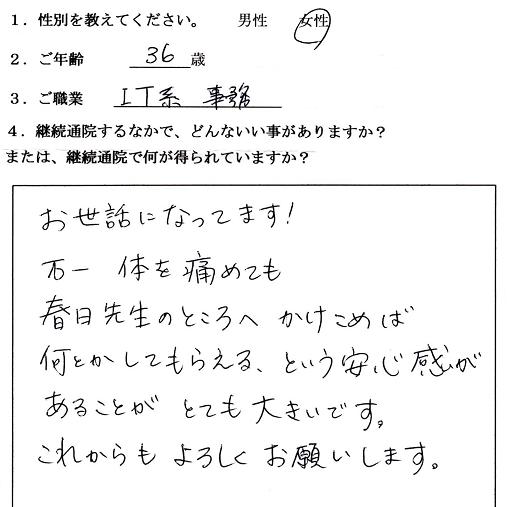 1．性別を教えてください。　男性　女性
2．ご年齢　36歳
3．ご職業　IT系 事務
4．継続通院するなかで、どんないい事がありますか？
または、継続通院で何が得られていますか？
お世話になってます！
万一 体を痛めても
春日先生のところへ かけこめば
何とかしてもらえる、という安心感が
あることが とても大きいです。
これからも よろしく お願いします。